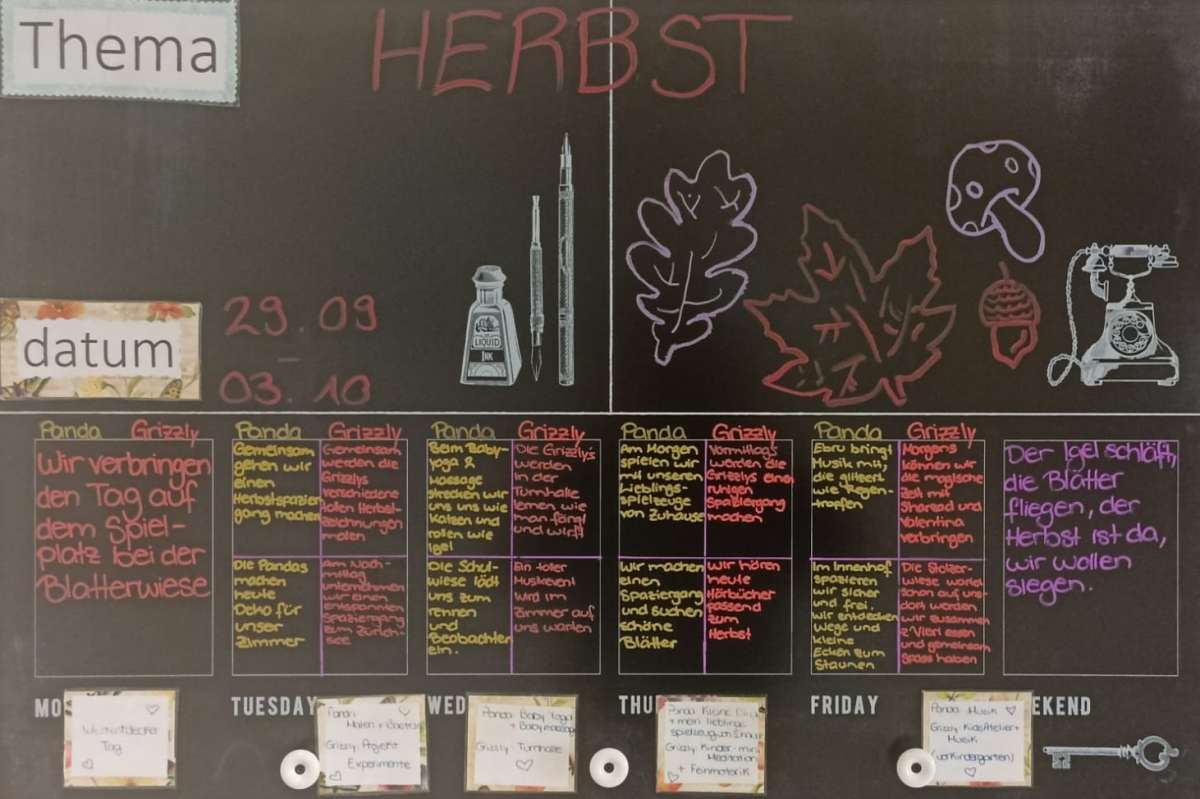 Thema
HERBST
datum
29.09
–
03.10
LIQUID
INK
Panda Grizzly
Wir verbringen
den Tag auf
dem Spiel-
platz bei der
Blatterwiese
Panda
Gemeinsam
gehen wir
einen
Herbstspazier
gang machen
Grizzly
Gemeinsam
werden die
Grizzlys
verschiedene
tollen Herbst-
zeichnungen
malen
Die Pandas
machen
heute
Deko für
unser
Zimmer
Am Nach-
mittag
unternehmen
wir einen
entspannten
Spaziergang
zum Zürich-
see
Panda
Beim Baby-
yoga &
Massage
strecken wir
uns wie
Katzen und
rollen wie
Igel
Grizzly
Die Grizzlys
werden
in der
Turnhalle
lernen wie
man fängt
und wirft
Die Schul-
wiese lädt
uns zum
rennen
und
Beobachten
ein.
Ein toller
Musikevent
wird im
Zimmer auf
uns warten
Panda
Am Morgen
spielen wir
mit unseren
Lieblings-
spielzeuge
von Zuhause
Grizzly
Vormittags
werden die
Grizzlys einen
ruhigen
Spaziergang
machen
Wir machen
einen
Spaziergang
und suchen
schöne
Blätter
Wir hören
heute
Hörbücher
passend
zum
Herbst
Panda
Ebru bringt
Musik mit,
die glitzert
wie Regen-
tropfen
Grizzly
Morgens
können wir
die magische
Zeit mit
Sharead und
Valentina
verbringen
Im Innenhof
spazieren
wir sicher
und frei.
Wir entdecken
Wege und
kleine
Ecken zum
Staunen
Die Stolzer-
wiese wartet
schon auf uns
dort werden
wir zusammen
z'Vieri essen
und gemeinsam
spass haben
Der Igel schläft,
die Blätter
fliegen, der
Herbst ist da,
wir wollen
siegen.
MO
TUESDAY
WED
THU
FRIDAY
EKEND
Tag
Panda:
Malen + Basteln
Grizzly: Projekt
Experimente
Panda: Baby Yoga
+ Babymassage
Grizzly: Turnhalle
Panda: Kleine
+ mein lieblings
spielzeug von Zuhause
Grizzly: Kinder-
Meditation
+ Feinmotorik
Panda: Musik
Grizzly: KidsAtelier +
Musik
(vorKindergarten)